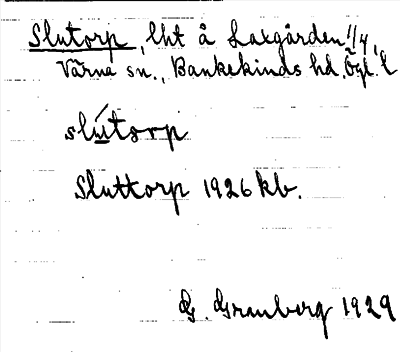 Slutorp, lht å Laxgården 1/4,
Värna sn., Bankekinds hd. Ögl. l
slútorp
Sluttorp 1926 kb.
G. Granberg 1929